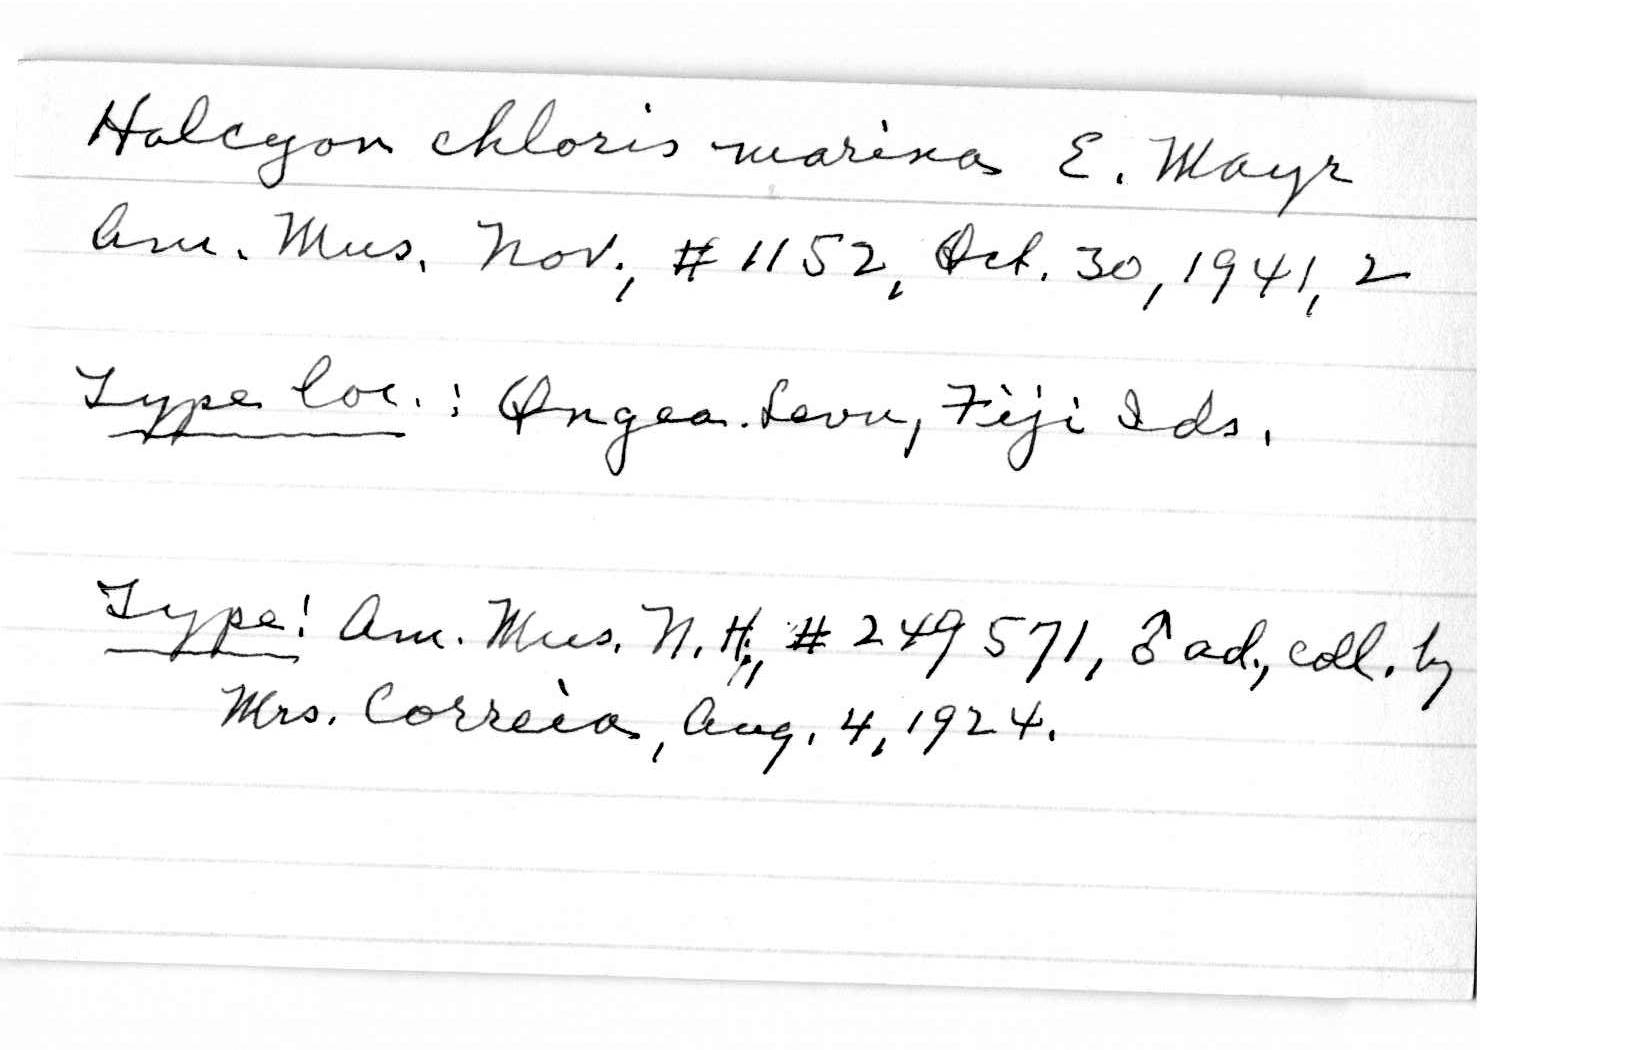 Halcyon chloris marina E. Mayr
Am. Mus. Nov., # 1152, Oct. 30, 1941, 2
Type loc.: Ongea Levu, Fiji Ids.
Type: Am. Mus. N. H., # 249571, ♂ ad., coll. by
Mrs. Correia, Aug. 4, 1924.